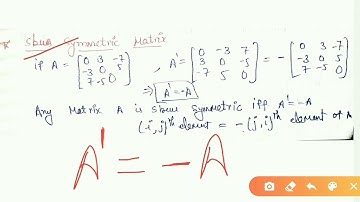 * Skew Symmetric Matrix
if A = [0 3 -7
-3 0 5
7 -5 0] A' = [0 -3 7
3 0 -5
-7 5 0] = - [0 3 -7
-3 0 5
7 -5 0]
⇒ A' = -A
Any Matrix A is skew symmetric iff A' = -A
(i,j)th element = -(j,i)th element of A
A' = -A